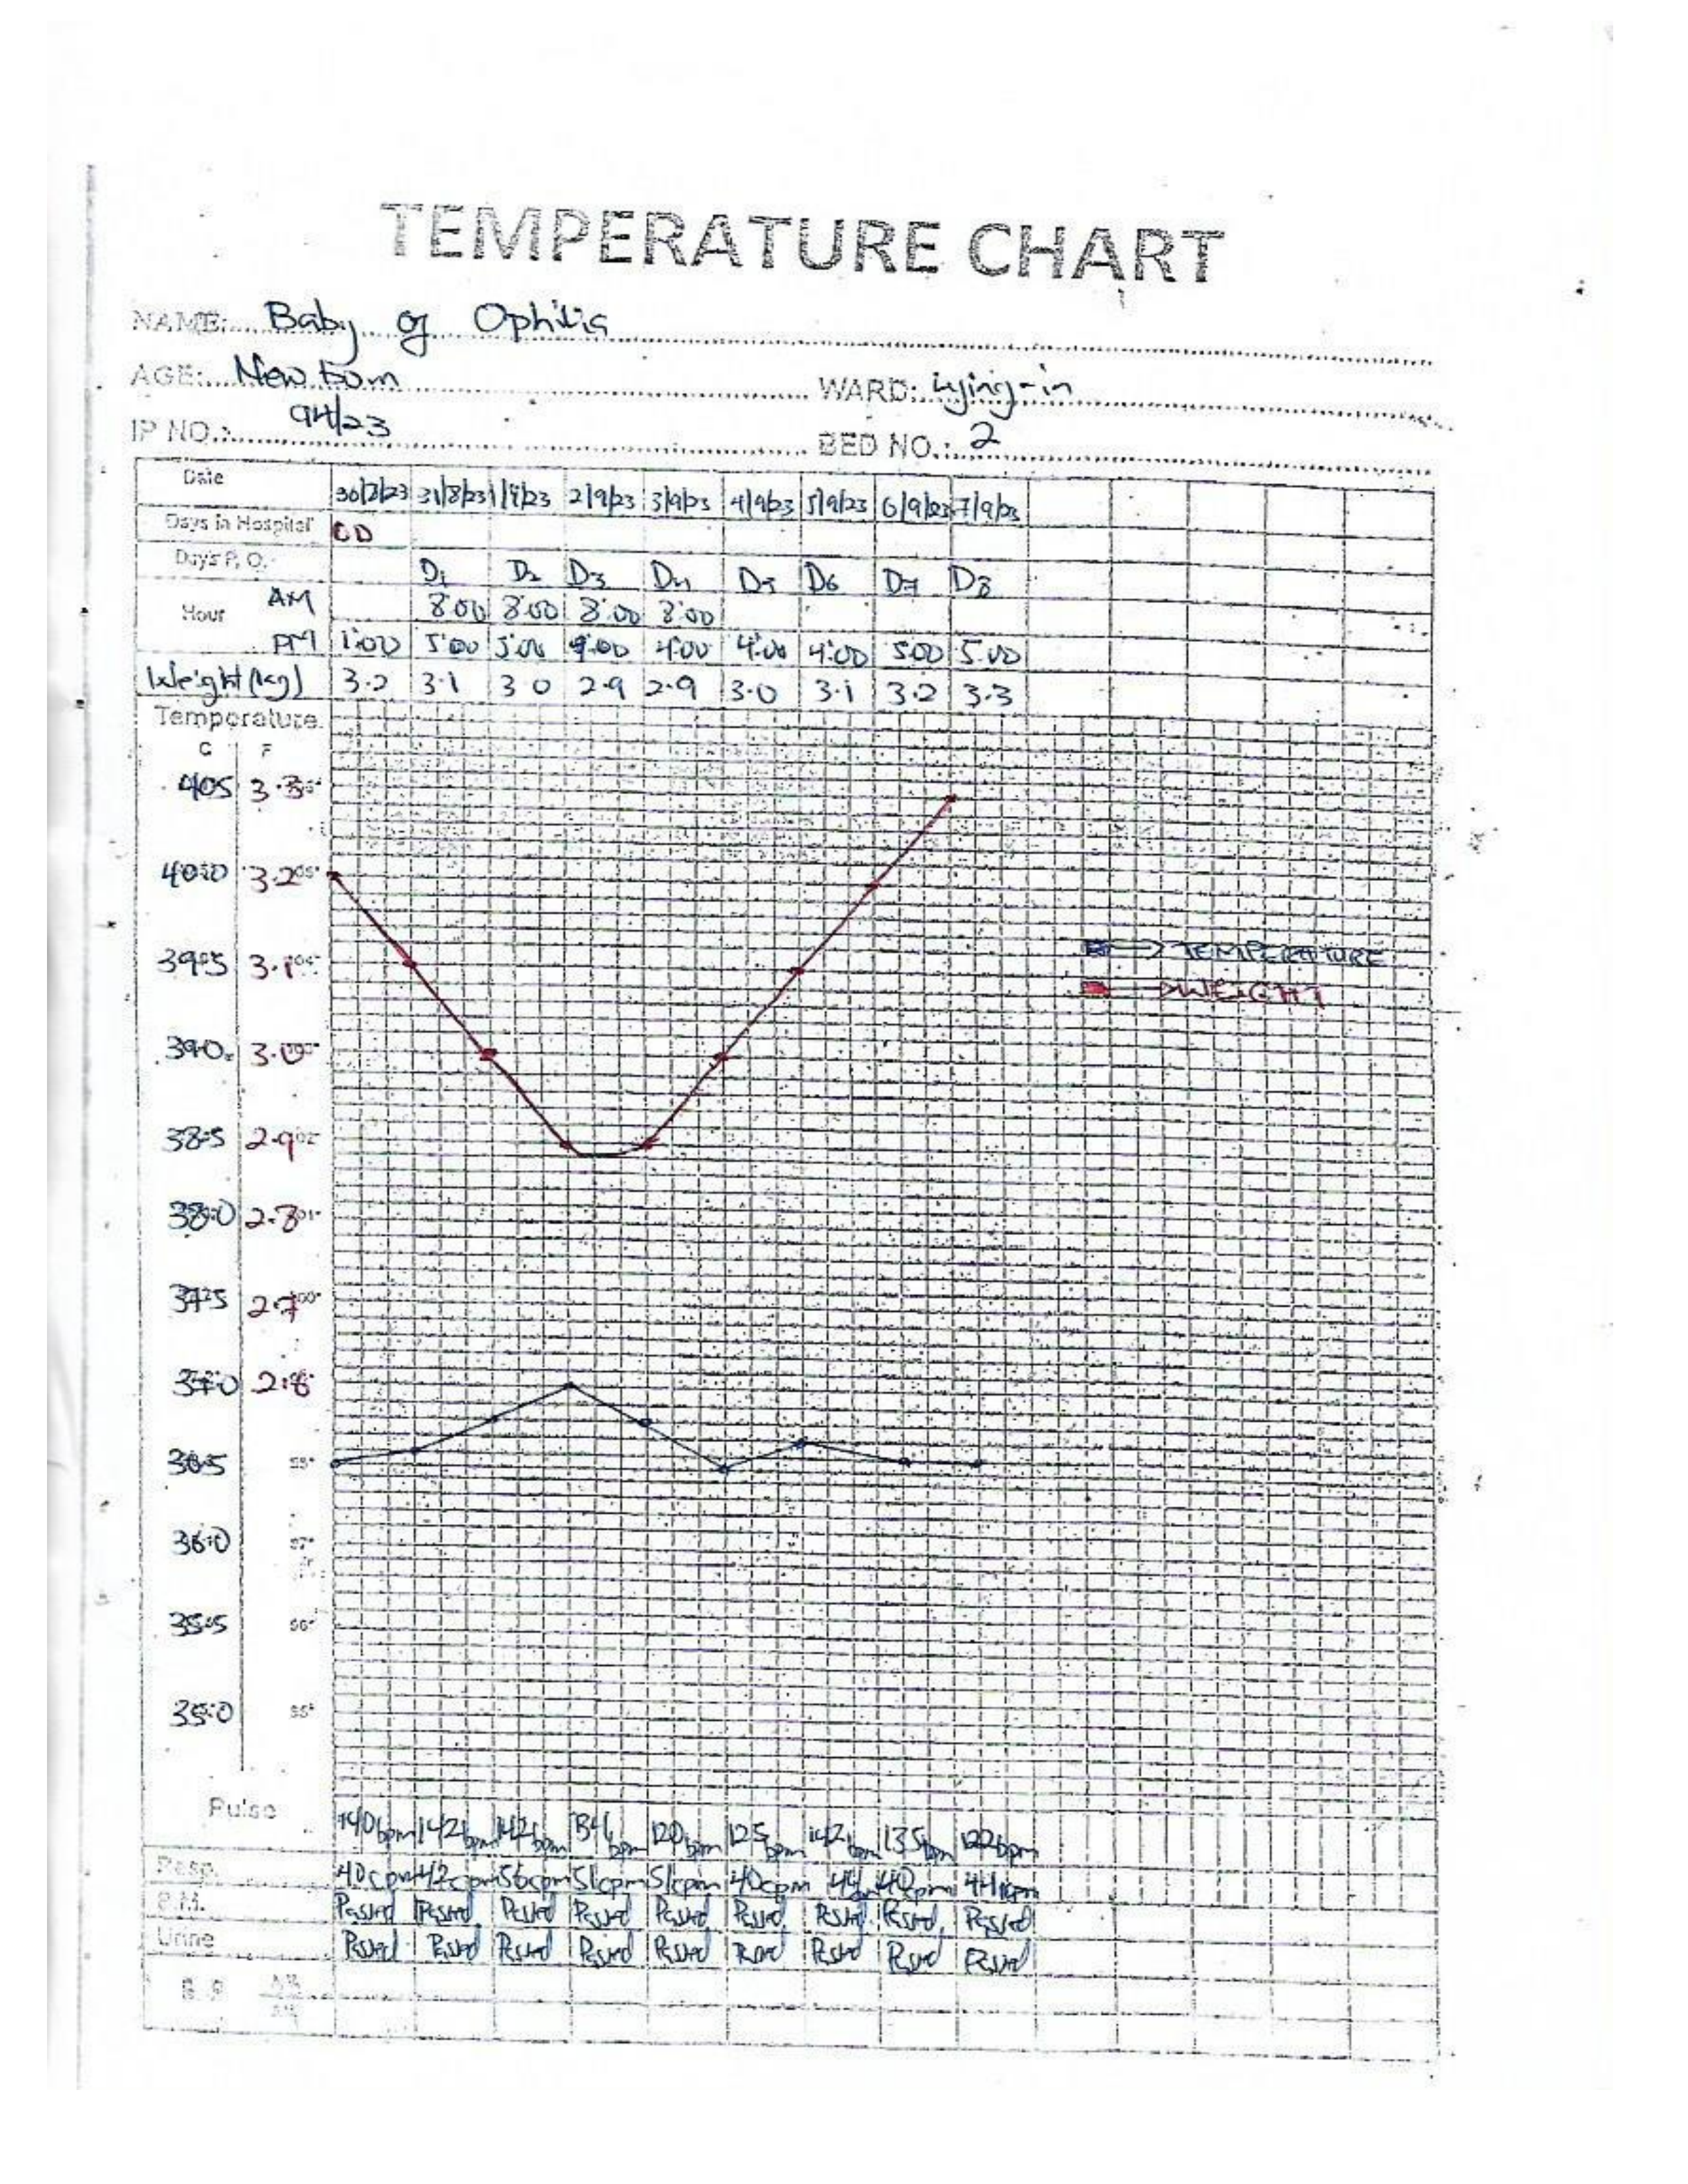 TEMPERATURE CHART
NAME: Baby of Ophilia
AGE: New born WARD: Lying-in
IP NO.: 94/23 BED NO.: 2
Date 30/8/23 31/8/23 1/9/23 2/9/23 3/9/23 4/9/23 5/9/23 6/9/23 7/9/23
Days in Hospital OD
Day's P. O. D1 D2 D3 D4 D5 D6 D7 D8
Hour AM 8:00 8:00 8:00 8:00
PM 1:00 5:00 5:00 4:00 4:00 4:00 5:00 5:00
Weight (kg) 3.2 3.1 3.0 2.9 2.9 3.0 3.1 3.2 3.3
Temperature
C F
40.5 3.3
40.0 3.2
39.5 3.1
TEMPERATURE
WEIGHT
39.0 3.0
38.5 2.9
38.0 2.8
37.5 2.7
37.0
36.5
36.0 97°
35.5 96°
35.0 95°
Pulse 140bpm 142bpm 142bpm 120bpm 125bpm 142bpm 135bpm 122bpm
Resp. 40cpm 42cpm 56cpm 51cpm 51cpm 40cpm 44 40cpm
B.M. Passed Passed Passed Passed Passed Passed Passed Passed Passed
Urine Passed Passed Passed Passed Passed Passed Passed Passed Passed
B.P